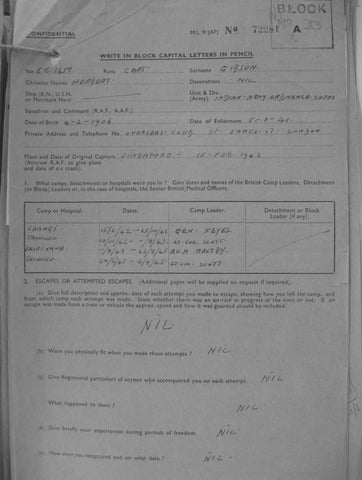 CONFIDENTIAL
M.I. 9/(AP) No 72281 A
BLOCK
WRITE IN BLOCK CAPITAL LETTERS IN PENCIL
No. Rank CAPT Surname GIBSON
Christian Names HERBERT Decorations NIL
Ship (R.N., U.S.N. or Merchant Navy
Unit & Div. (Army) INDIAN ARMY ORDNANCE CORPS
Squadron and Command (R.A.F., A.A.F.)
Date of Birth 4-2-1906 Date of Enlistment
Private Address and Telephone No. OVERSEAS CLUB ST. JAMES ST LONDON
Place and Date of Original Capture SINGAPORE - 15-FEB 1942
(Aircrew R.A.F. to give place and date of air crash).
1. What camps, detachments or hospitals were you in? Give dates and names of the British Camp Leaders, Detachment
(or Block) Leaders, or, in the case of hospitals, the Senior British Medical Officers.
Camp or Hospital. Dates. Camp Leader. Detachment or Block Leader (if any).
CHANGI 15/2/42 - 25/10/42 GEN. KEYES
10/11/42 - 7/8/43 LT. COL. SCOTT
7/8/43 - MALTBY
LT. COL. SCOTT
2. ESCAPES OR ATTEMPTED ESCAPES. (Additional paper will be supplied on request if required).
(a) Give full description and approx. date of each attempt you made to escape, showing how you left the camp, and
from which camp each attempt was made. State whether there was an air-raid in progress at the time or not. If an
escape was made from a train or vehicle the approx. speed and how it was guarded should be included.
NIL
(b) Were you physically fit when you made these attempts? NIL
(c) Give Regimental particulars of anyone who accompanied you on each attempt. NIL
What happened to them? NIL
(d) Give briefly your experiences during periods of freedom. NIL
(e) How were you recaptured and on what date? NIL